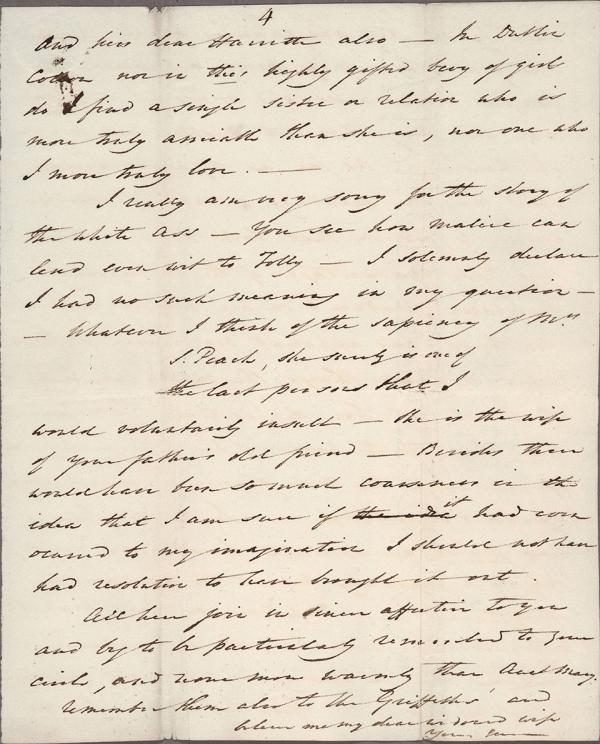 4
And kiss dear Harriette also — In Dublin
nor in this highly gifted bevy of girls
do I find a single sister or relation who is
more truly amiable than she is, nor one who
I more truly love. —
I really am very sorry for the story of
the white Ass — You see how malice can
lend even wit to Folly — I solemnly declare
I had no such meaning in my question —
— Whatever I think of the sapiency of Mrs
S. Peach, she surely is one of
the last persons that I
would voluntarily insult — She is the wife
of your father's old friend — Besides there
would have been so much coarseness in the
idea that I am sure if the idea it had even
occured to my imagination I should not have
had resolution to have brought it out.
All here join in sincere affection to you
and beg to be particularly remembered to your
circle, and none more warmly than Aunt Mary.
remember them also to the Griffiths' and
believe me my dear wife
Yours